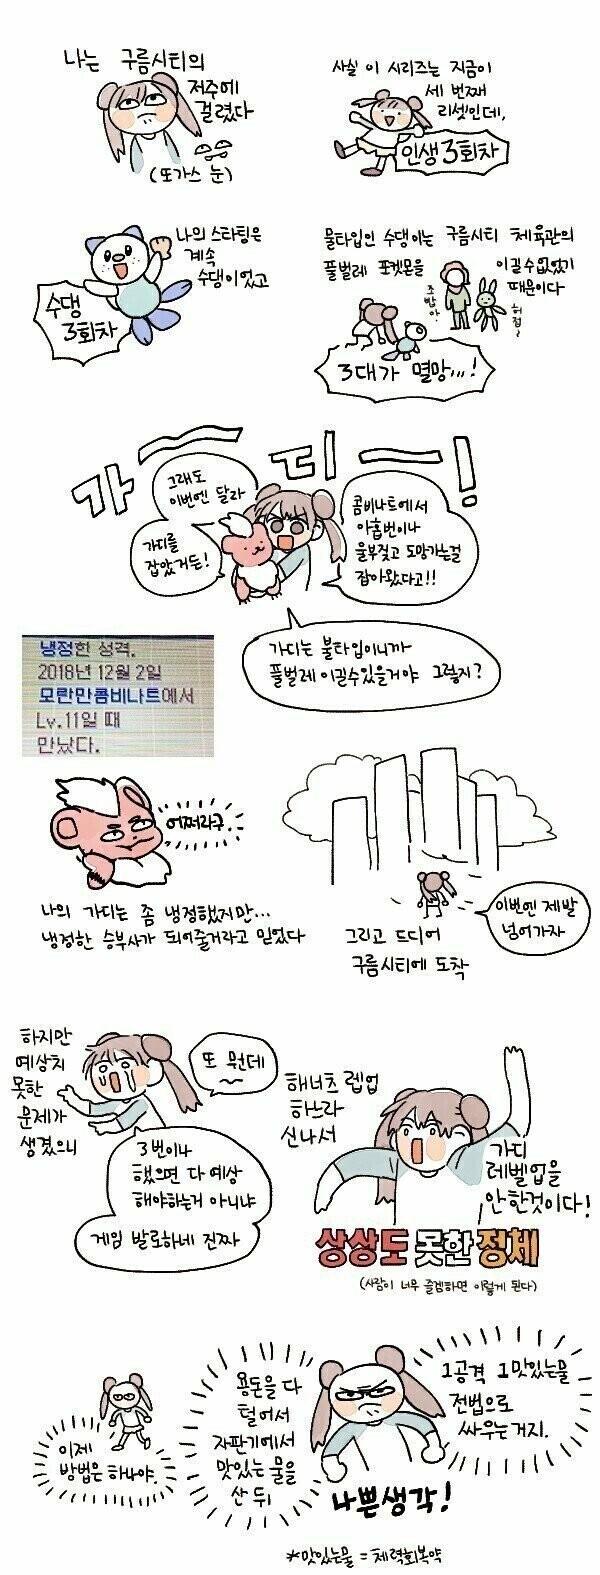 나는 구름시티의
저주에
걸렸다
(또가스 눈)
사실 이 시리즈는 지금이
세 번째
리셋인데,
인생 3회차
나의 스타팅은
계속
수댕이었고
수댕
3회차
물타입인 수댕이는 구름시티 체육관의
풀벌레 포켓몬을
이길수없었기
때문이다
초밥아..
허접~
3대가 멸망...!
가디!
그래도
이번엔 달라
가디를
잡았거든!
콤비나트에서
아홉번이나
울부짖고 도망가는걸
잡아왔다고!!
가디는 불타입이니까
풀벌레 이길수있을거야 그렇지?
냉정한 성격.
2018년 12월 2일
모란만콤비나트에서
Lv.11일 때
만났다.
어쩌라구.
나의 가디는 좀 냉정했지만...
냉정한 승부사가 되어줄거라고 믿었다
이번엔 제발
넘어가자
그리고 드디어
구름시티에 도착
하지만
예상치
못한
문제가
생겼으니
또 뭔데
3번이나
했으면 다 예상
해야하는거 아니냐
게임 발로하네 진짜
해너츠 렙업
하느라
신나서
가디
레벨업을
안한것이다!
상상도 못한 정체
(사람이 너무 즐겜하면 이렇게 된다)
이제
방법은 하나야.
용돈을 다
털어서
자판기에서
맛있는 물을
산 뒤
1공격 1맛있는물
전법으로
싸우는거지.
나쁜생각!
*맛있는물 = 체력회복약